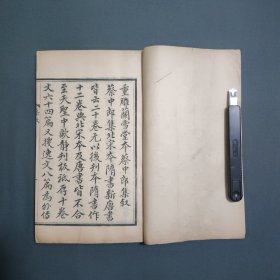 重雕蘭雪堂本蔡中郎集叙
蔡中郎集北宋本隋書新唐書
皆云二十卷元以後刊本隋書作
十二卷與北宋本及唐書皆不合
至天聖中歐靜刊祇存十卷
文六十四篇又獲逸文八篇為於偣